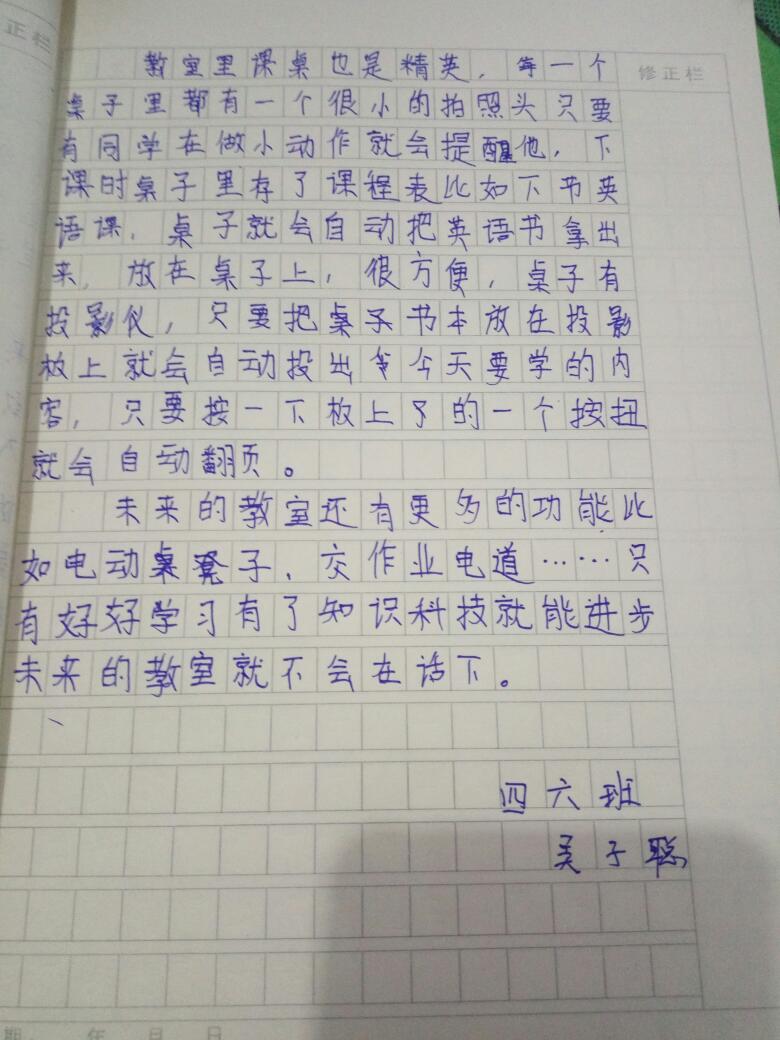 正栏
修正栏
教室里课桌也是精英，每一个
桌子里都有一个很小的拍照头只要
有同学在做小动作就会提醒他，下
课时桌子里存了课程表比如下书英
语课，桌子就会自动把英语书拿出
来，放在桌子上，很方便，桌子有
投影仪，只要把桌子书本放在投影
板上就会自动投出今天要学的内
容，只要按一下板上了的一个按扭
就会自动翻页。
未来的教室还有更多的功能比
如电动桌凳子、交作业电道……只
有好好学习有了知识科技就能进步
未来的教室就不会在话下。
四六班
吴子聪
期 年 月 日